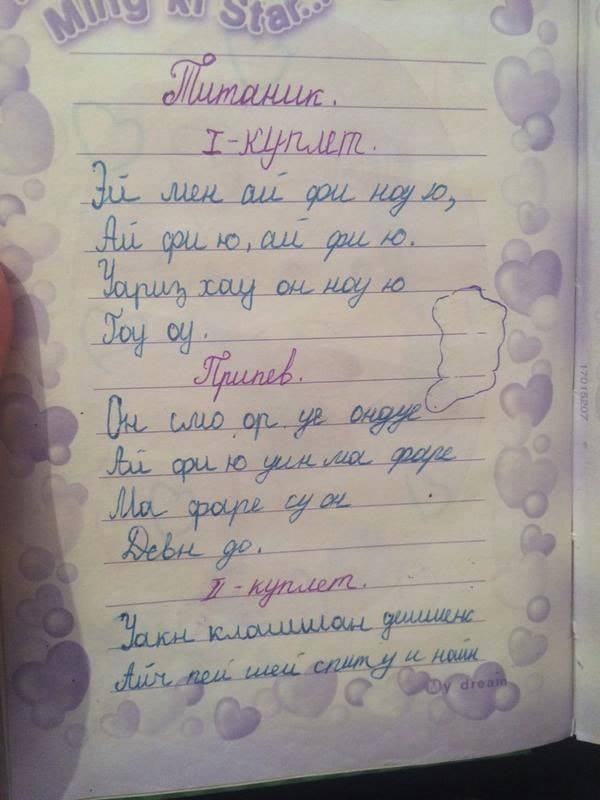 Ming ki Star...
Титаник.
I-куплет.
Эй мен ай фи ноу ю,
Ай фи ю, ай фи ю.
Уариз хау он ноу ю
Гоу оу.
Припев.
Он смо ор уе ондуе
Ай фи ю уин ма фаре
Ма фаре су он
Девн до.
II-куплет.
Уакн клашман дешиенс
Айч пей шей спиту и найн
My dream
17015207